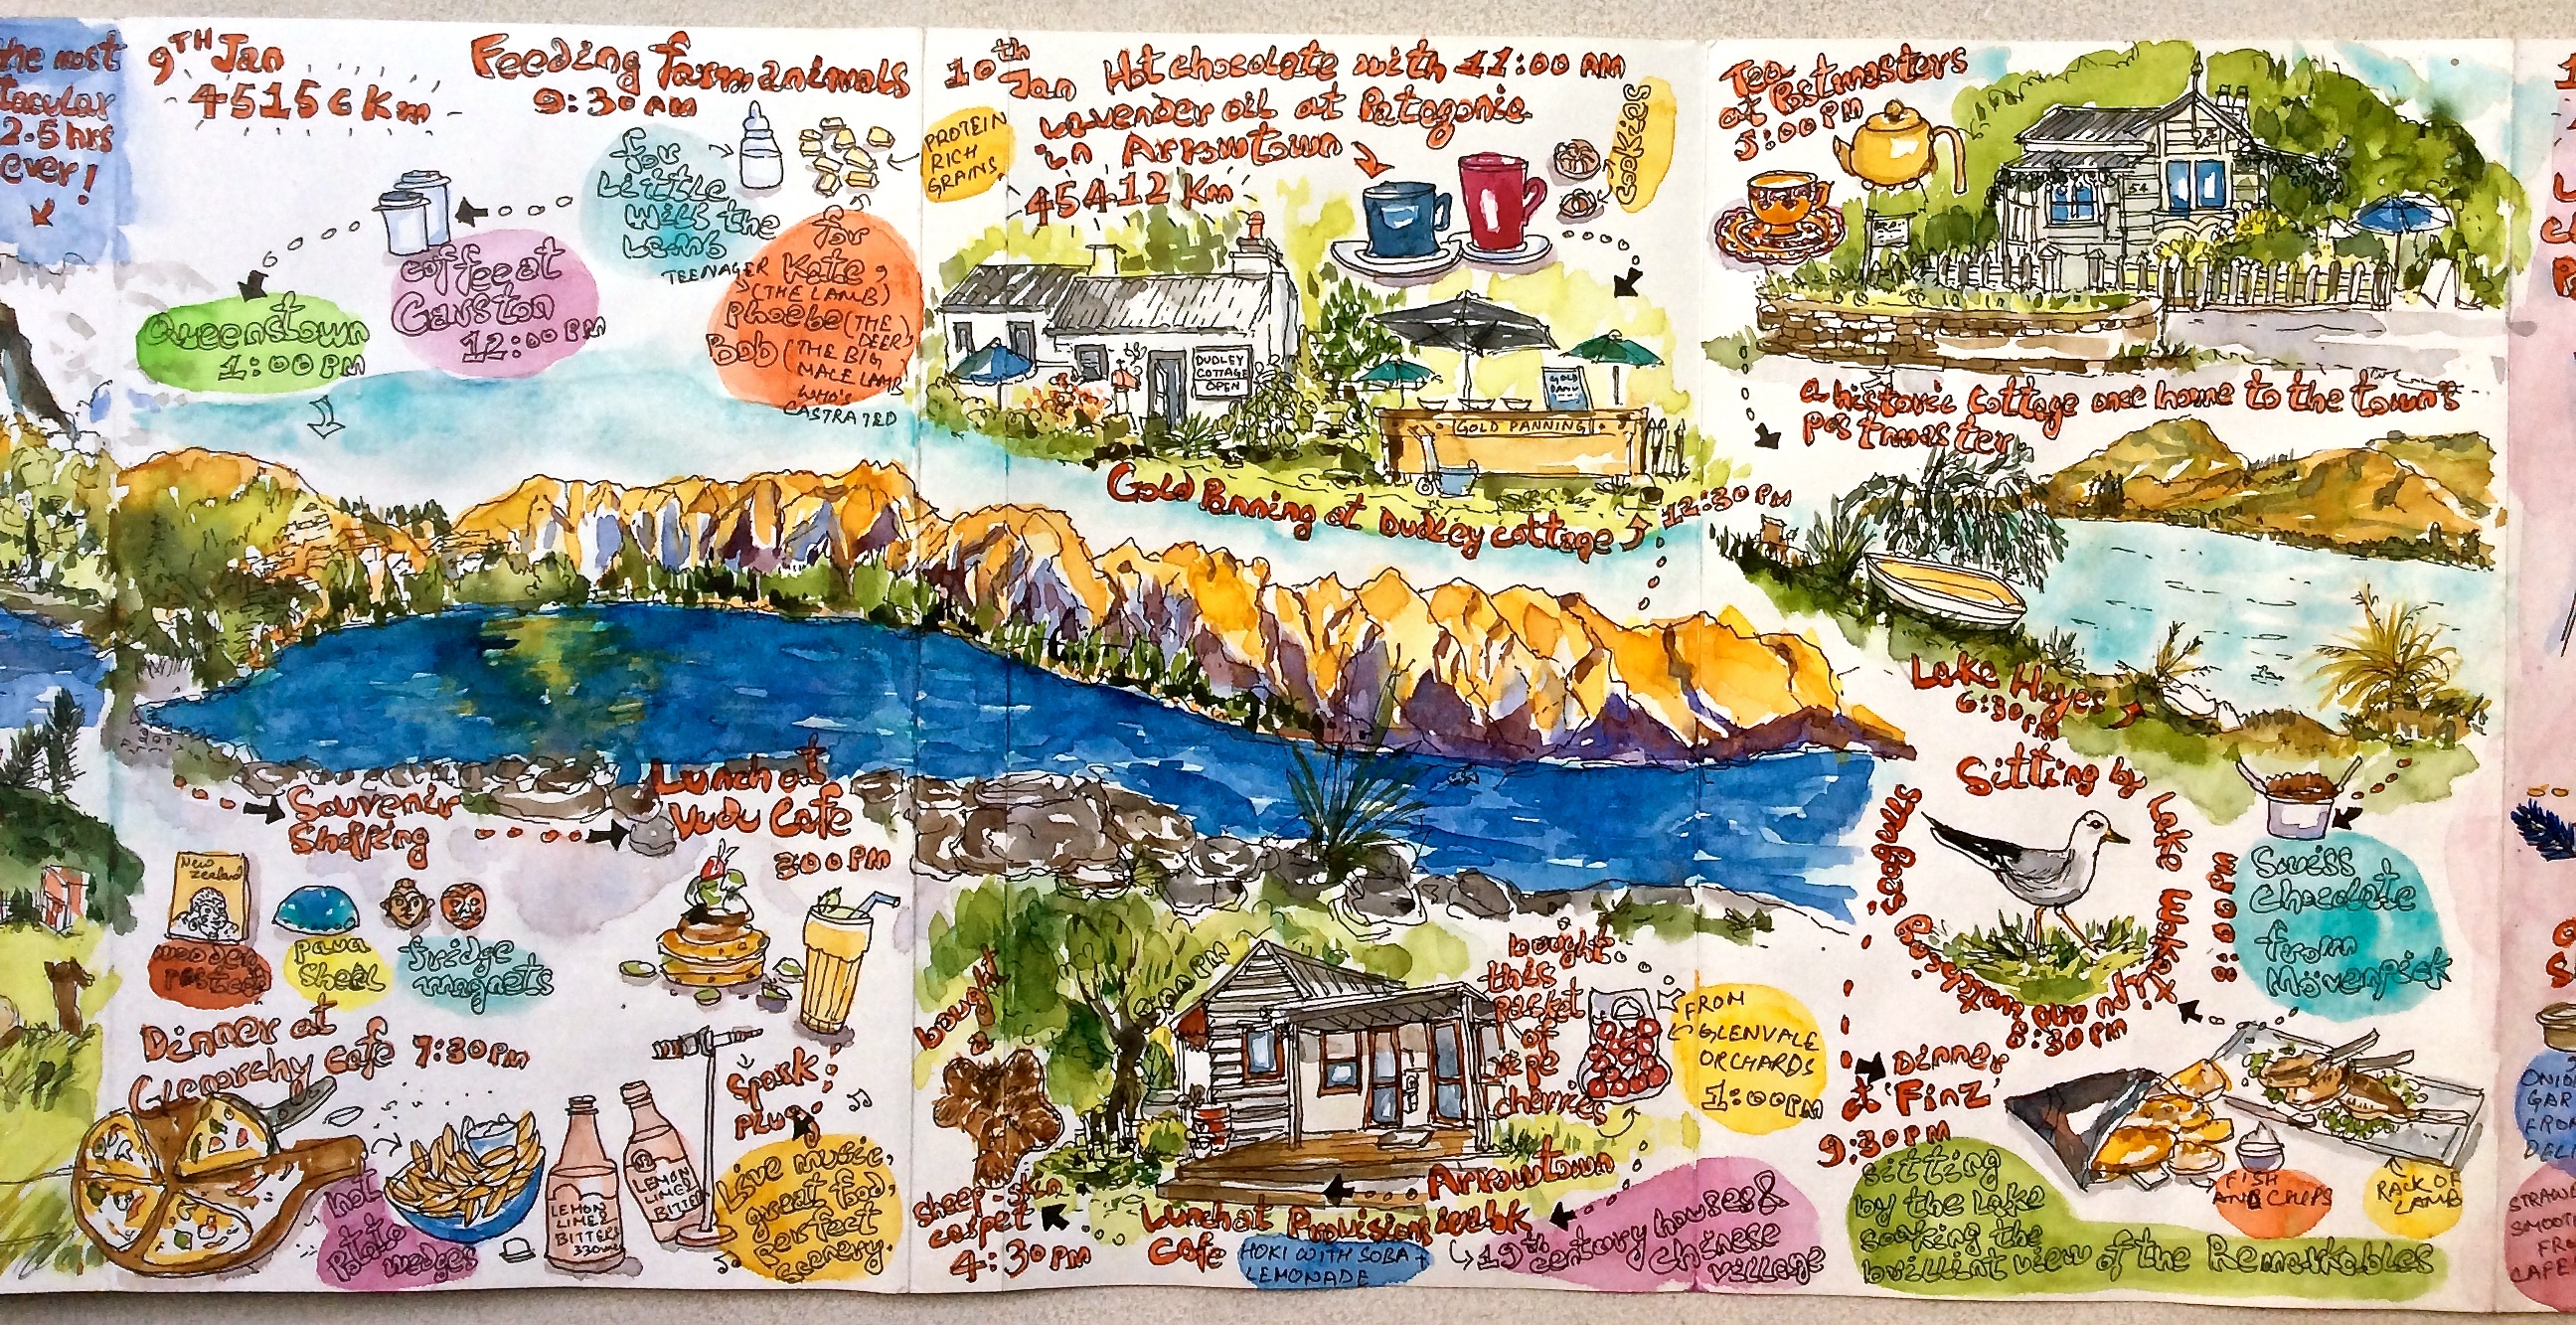 the most
2.5 hrs
ever!
9TH Jan
45156 Km
Feeding farm animals
9:30 AM
for
Little
Miss the
Lamb
PROTEIN
RICH
GRAINS
for
Kate,
TEENAGER
(THE LAMB)
Phoebe (THE
DEER)
Bob (THE BIG
MALE LAMB
WHO'S
CASTRATED
coffee at
Garston
12:00 PM
Queenstown
1:00 PM
Souvenir
Shopping
New
Zealand
wooden
postcard
paua
shell
fridge
magnets
Lunch at
Vudu Cafe
3:00 PM
Dinner at
Glenorchy Cafe 7:30 PM
hot
Potato
wedges
LEMON
LIME &
BITTERS
330ml
LEMON
LIME &
BITTERS
Spark
PLUG
Live music,
great food,
perfect
scenery.
10th
Jan
Hot chocolate with 11:00 AM
Lavender oil at Patagonia
in Arrowtown
45412 Km
cookies
DUDLEY
COTTAGE
OPEN
GOLD
PANNING
Gold Panning at Dudley cottage 12:30 PM
bought
this
packet
of
ripe
cherries
FROM
GLENVALE
ORCHARDS
1:00 PM
Arrowtown
walk
19th century houses &
Chinese
village
Lunch at Provisions
Cafe
HOKI WITH SOBA +
LEMONADE
bought
a
sheep-skin
carpet
4:30 PM
Tea
at Postmasters
5:00 PM
54
a historic cottage once home to the town's
postmaster
Lake Hayes
6:30 PM
Sitting by
Lake Wakatipu and watching
seagulls
8:30 PM
Swiss
chocolate
from
Mövenpick
8:00 PM
Dinner
at 'Finz'
9:30 PM
FISH
AND CHIPS
RACK OF
LAMB
sitting
by the lake
soaking the
brilliant view of the Remarkables